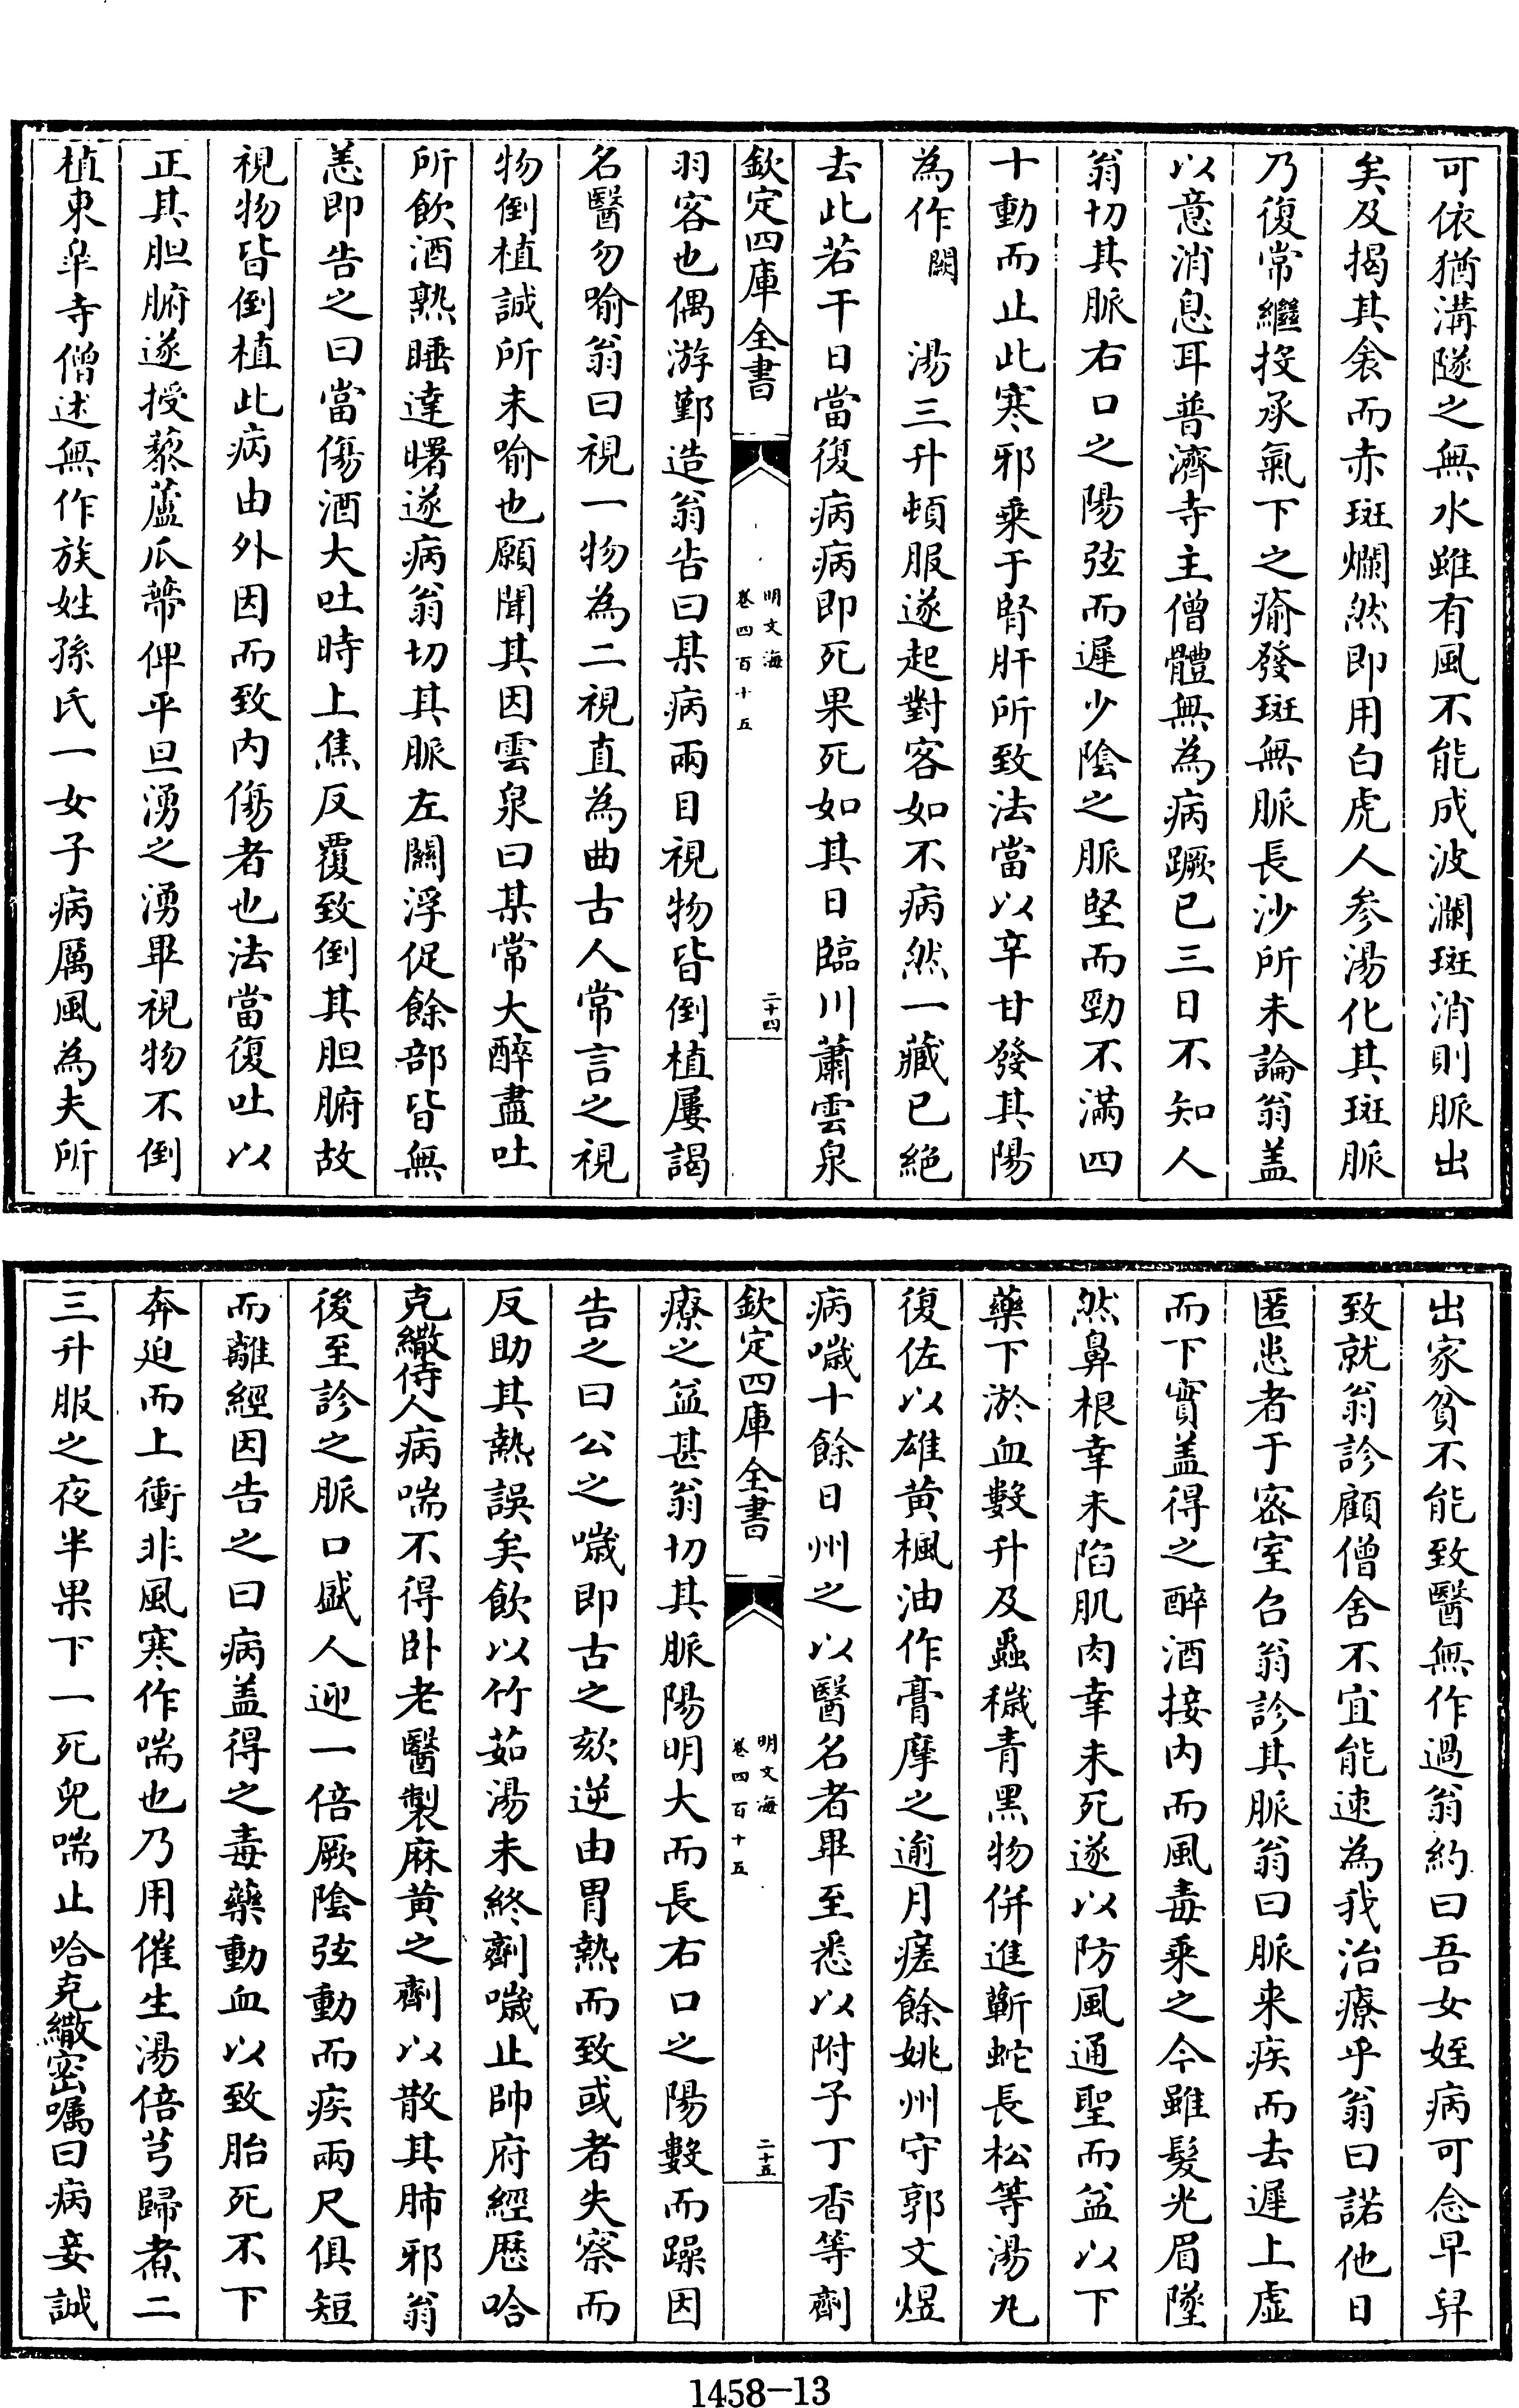 可依猶溝隧之無水雖有風不能成波瀾斑消則脈出
矣及揭其衾而赤斑爛然即用白虎人參湯化其斑脈
乃復常繼投承氣下之瘉發斑無脈長沙所未論翁盖
以意消息耳普濟寺主僧體無為病蹶已三日不知人
翁切其脈右口之陽弦而遲少陰之脈堅而勁不滿四
十動而止此寒邪乗于腎肝所致法當以辛甘發其陽
為作闕湯三升頓服遂起對客如不病然一藏已絶
去此若干日當復病病即死果死如其日臨川蕭雲泉
欽定四庫全書
明文海
卷四百十五
二十四
羽客也偶游鄞造翁告曰某病兩目視物皆倒植屢謁
名醫勿喻翁曰視一物為二視直為曲古人常言之視
物倒植誠所未喻也願聞其因雲泉曰某常大醉盡吐
所飲酒熟睡達曙遂病翁切其脈左關浮促餘部皆無
恙即告之曰當傷酒大吐時上焦反覆致倒其胆腑故
視物皆倒植此病由外因而致内傷者也法當復吐以
正其胆腑遂授藜蘆瓜蔕俾平旦湧之湧畢視物不倒
植東臯寺僧述無作族姓孫氏一女子病厲風為夫所
出家貧不能致醫無作過翁約曰吾女姪病可念早舁
致就翁診顧僧舍不宜能速為我治療乎翁曰諾他日
匿患者于宻室召翁診其脈翁曰脈来疾而去遲上虚
而下實盖得之醉酒接内而風毒乗之今雖髮光眉墜
然鼻根幸未陷肌肉幸未死遂以防風通聖而益以下
藥下淤血數升及蟲穢青黑物併進蘄蛇長松等湯九
復佐以雄黄楓油作膏摩之逾月瘥餘姚州守郭文煜
病噦十餘日州之以醫名者畢至悉以附子丁香等劑
欽定四庫全書
明文海
卷四百十五
二十五
療之益甚翁切其脈陽明大而長右口之陽數而躁因
告之曰公之噦即古之欬逆由胃熱而致或者失察而
反助其熱誤矣飲以竹茹湯未終劑噦止帥府經歴哈
克繖侍人病喘不得卧老醫製麻黄之劑以散其肺邪翁
後至診之脈口盛人迎一倍厥陰弦動而疾兩尺俱短
而離經因告之曰病盖得之毒藥動血以致胎死不下
奔迫而上衝非風寒作喘也乃用催生湯倍芎歸煮二
三升服之夜半果下一死兒喘止哈克繖密嘱曰病妾誠
1458—13